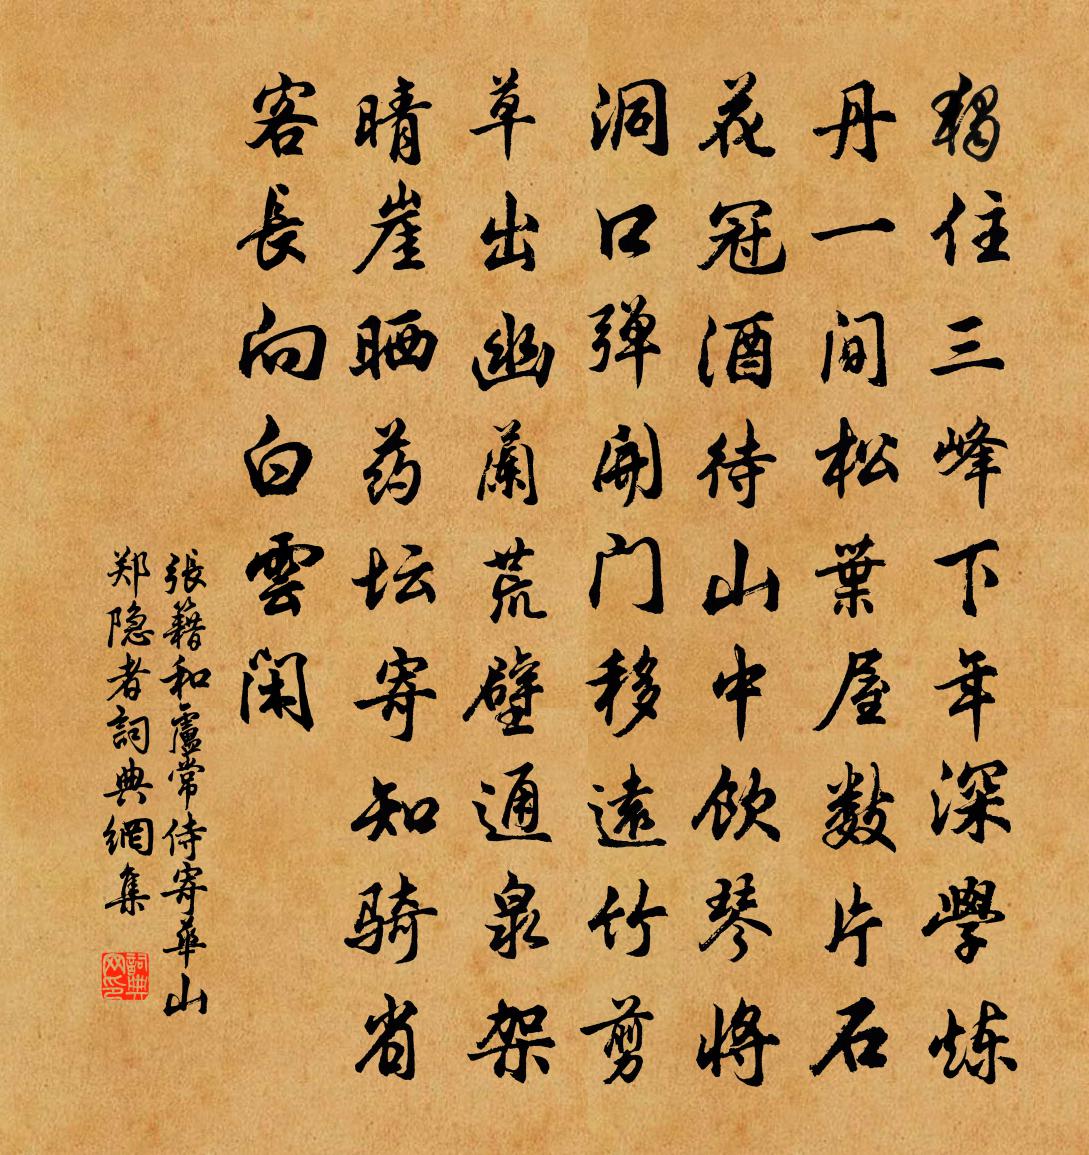 獨住三峰下年深學炼
丹一间松葉屋数片石
花冠酒待山中飲琴将
洞口弹開门移遠竹剪
草出幽蘭荒壁通泉架
晴崖晒药坛寄知骑省
客長向白雲闲
張籍和盧常侍寄華山
郑隐者詞典網集
詞典网印